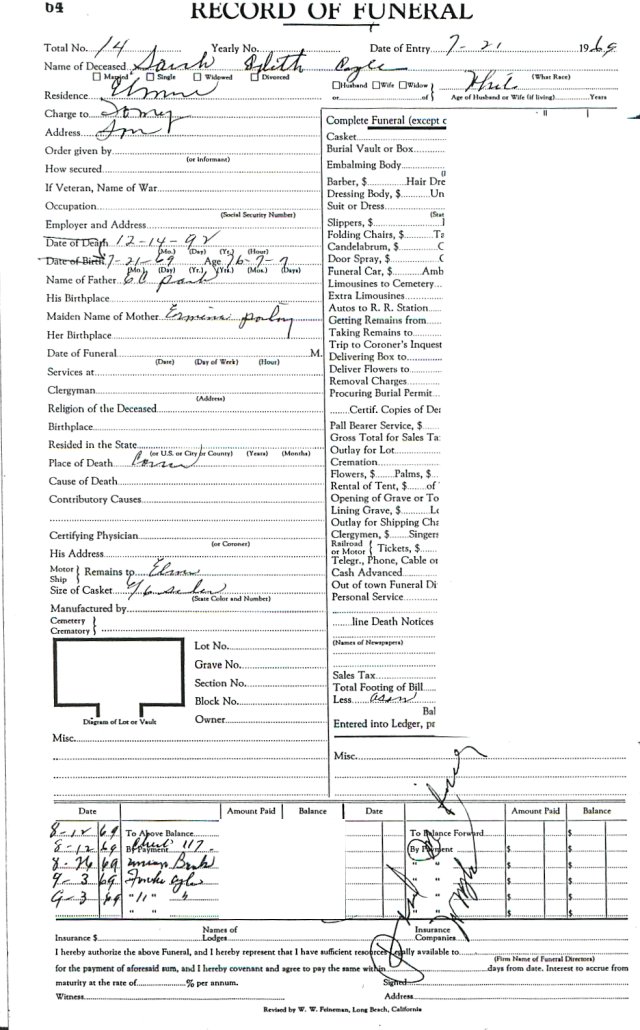 64
RECORD OF FUNERAL
Total No. 14 Yearly No. Date of Entry 7-21 1969
Name of Deceased Sarah
Married Single Widowed Divorced Husband Wife Widow (What Race)
or of Age of Husband or Wife (if living) Years
Residence
Charge to
Address
Order given by
(or Informant)
How secured
If Veteran, Name of War
Occupation
(Social Security Number)
Employer and Address
Date of Death 12-14-92
(Mo.) (Day) (Yr.) (Hour)
Date of Birth 7-21-69 Age 76-7-7
(Mo.) (Day) (Yr.) (Yrs.) (Mos.) (Days)
Name of Father
His Birthplace
Maiden Name of Mother
Her Birthplace
Date of Funeral M.
(Date) (Day of Week) (Hour)
Services at
Clergyman
(Address)
Religion of the Deceased
Birthplace
Resided in the State
(or U.S. or City or County) (Years) (Months)
Place of Death
Cause of Death
Contributory Causes
Certifying Physician
(or Coroner)
His Address
Motor
Ship Remains to
Size of Casket
(State Color and Number)
Manufactured by
Cemetery
Crematory
Lot No.
Grave No.
Section No.
Block No.
Owner
Diagram of Lot or Vault
Misc.
Complete Funeral (except c
Casket
Burial Vault or Box
Embalming Body
Barber, $ Hair Dre
Dressing Body, $ Un
Suit or Dress
(Stat
Slippers, $
Folding Chairs, $ Ta
Candelabrum, $ C
Door Spray, $ C
Funeral Car, $ Amb
Limousines to Cemetery
Extra Limousines
Autos to R. R. Station
Getting Remains from
Taking Remains to
Trip to Coroner's Inquest
Delivering Box to
Deliver Flowers to
Removal Charges
Procuring Burial Permit
Certif. Copies of De
Pall Bearer Service, $
Gross Total for Sales Ta
Outlay for Lot
Cremation
Flowers, $ Palms, $
Rental of Tent, $ of
Opening of Grave or To
Lining Grave, $ Lo
Outlay for Shipping Cha
Clergymen, $ Singers
Railroad
or Motor Tickets, $
Telegr., Phone, Cable or
Cash Advanced
Out of town Funeral Di
Personal Service
line Death Notices
(Names of Newspapers)
Sales Tax
Total Footing of Bill
Less
Bal
Entered into Ledger, pa
Misc.
Date Amount Paid Balance Date Amount Paid Balance
8-12 69 To Above Balance To Balance Forward $ $
8-12 69 By Payment 117. By Payment $ $
8-26 69 Bank " " $ $
9-3 69 " " $ $
9-3 69 " 11 " " " " $ $
" " " " $ $
Insurance $ Names of Lodges Insurance Companies
I hereby authorize the above Funeral, and I hereby represent that I have sufficient resources legally available to
(Firm Name of Funeral Directors)
for the payment of aforesaid sum, and I hereby covenant and agree to pay the same within days from date. Interest to accrue from
maturity at the rate of % per annum. Signed
Witness Address
Revised by W. W. Feineman, Long Beach, California